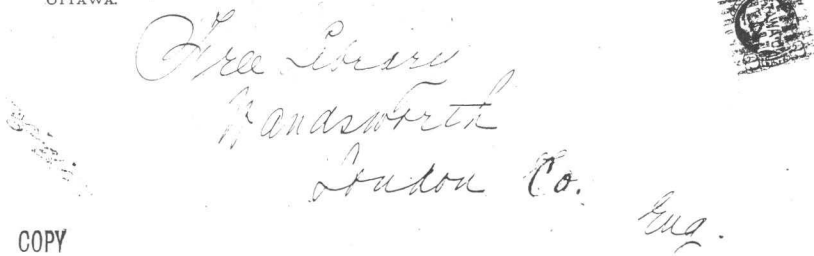 OTTAWA.
Free Library
Wandsworth
London Co.
Eng.
COPY